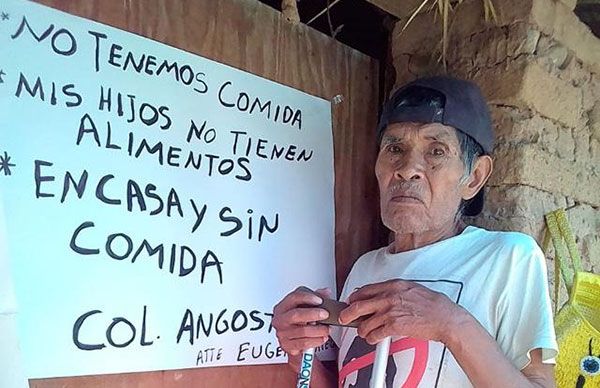 *NO TENEMOS COMIDA
*MIS HIJOS NO TIENEN
ALIMENTOS
*EN CASA Y SIN
COMIDA
COL. ANGOST
ATTE EUGE